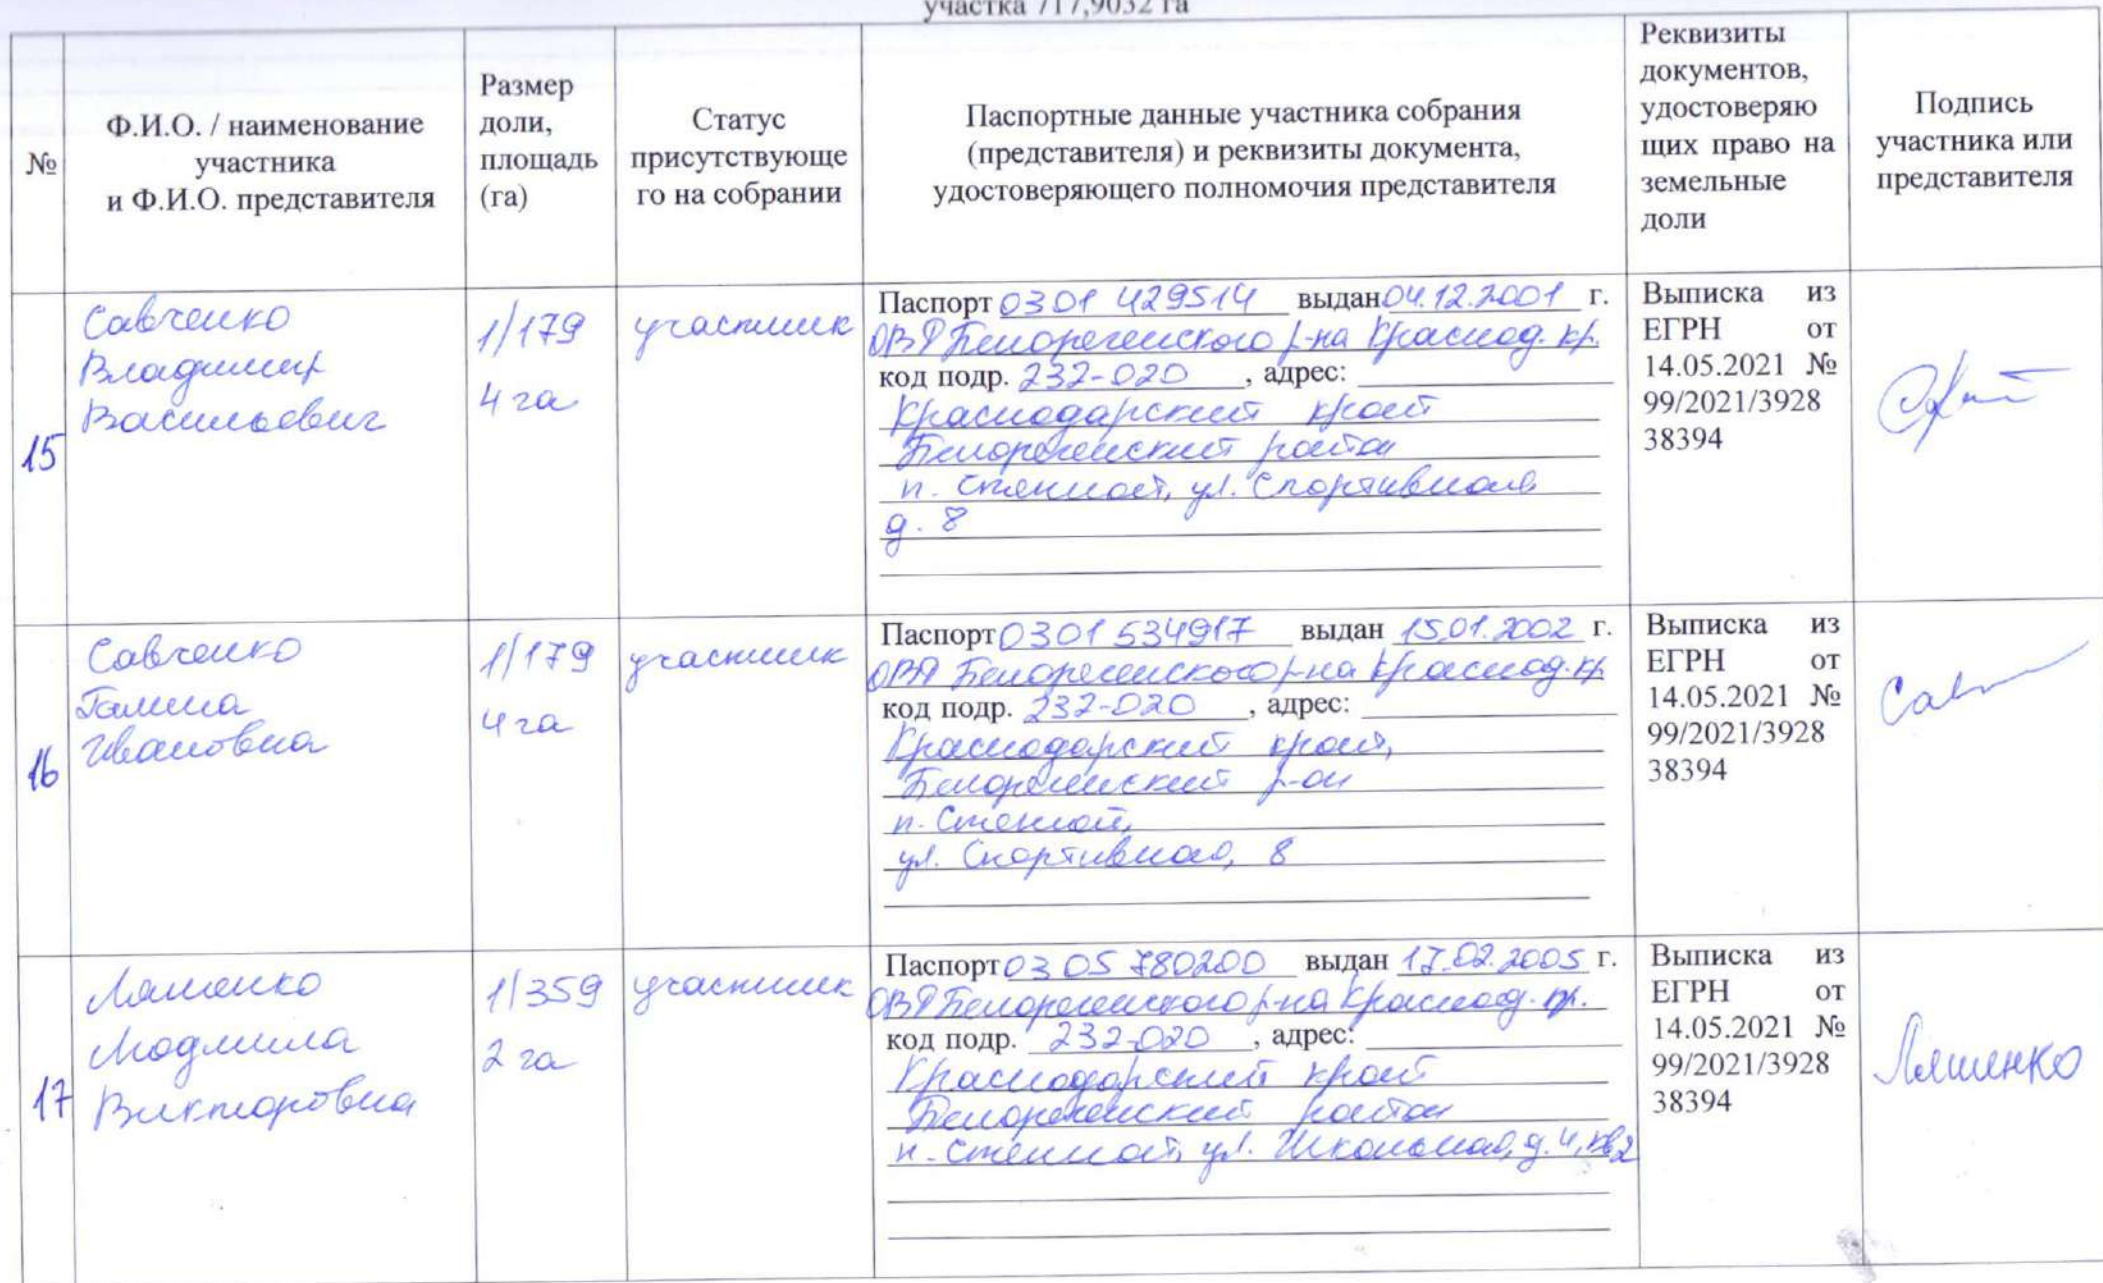 участка 717,9032 га
№
Ф.И.О. / наименование
участника
и Ф.И.О. представителя
Размер
доли,
площадь
(га)
Статус
присутствующе
го на собрании
Паспортные данные участника собрания
(представителя) и реквизиты документа,
удостоверяющего полномочия представителя
Реквизиты
документов,
удостоверяю
щих право на
земельные
доли
Подпись
участника или
представителя
15
Савченко
Владимир
Васильевич
1/179
4 га
участник
Паспорт 0301 429514 выдан 04.12.2001 г.
ОВД Белореченского р-на Краснод. кр.
код подр. 232-020, адрес:
Краснодарский край
Белореченский район
п. Степной, ул. Спортивная
д. 8
Выписка из
ЕГРН от
14.05.2021 №
99/2021/3928
38394
16
Савченко
Галина
Ивановна
1/179
4 га
участник
Паспорт 0301 534917 выдан 15.01.2002 г.
ОВД Белореченского р-на Краснод. кр
код подр. 232-020, адрес:
Краснодарский край,
Белореченский р-он
п. Степной,
ул. Спортивная, 8
Выписка из
ЕГРН от
14.05.2021 №
99/2021/3928
38394
Сав
17
Ляшенко
Людмила
Викторовна
1/359
2 га
участник
Паспорт 03 05 780200 выдан 17.02.2005 г.
ОВД Белореченского р-на Краснод. кр.
код подр. 232-020, адрес:
Краснодарский край
Белореченский район
п. Степной, ул. Школьная, д. 4, кв 2
Выписка из
ЕГРН от
14.05.2021 №
99/2021/3928
38394
Ляшенко